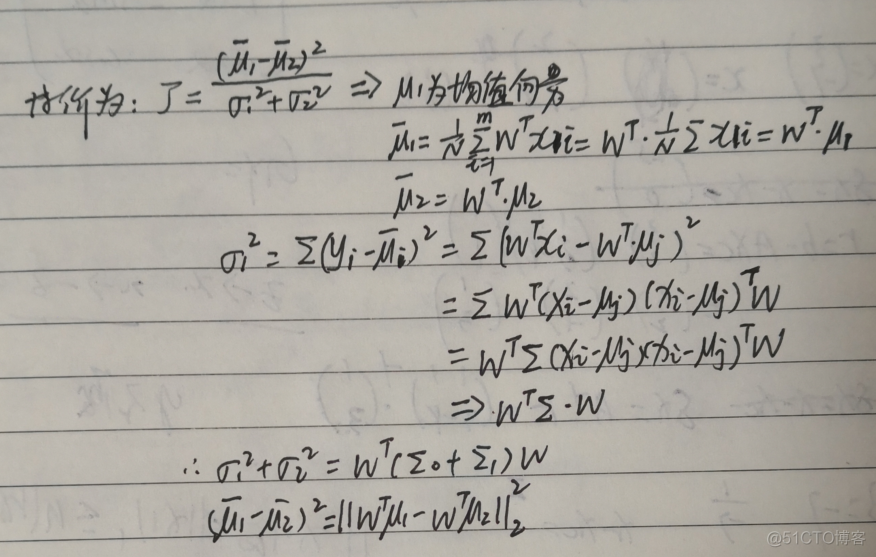 代价为: J = (μ̄₁-μ̄₂)² / (σ₁²+σ₂²) => μ₁为均值向量
μ̄₁ = 1/N Σ_{i=1}^{m} Wᵀx₁i = Wᵀ·1/N Σ x₁i = Wᵀ·μ₁
μ̄₂ = Wᵀ·μ₂
σ₁² = Σ(yᵢ-μ̄ᵢ)² = Σ(Wᵀxᵢ-Wᵀ·μⱼ)²
= Σ Wᵀ(xᵢ-μⱼ)(xᵢ-μⱼ)ᵀW
= WᵀΣ(xᵢ-μⱼ)(xᵢ-μⱼ)ᵀW
=> WᵀΣ·W
∴ σ₁²+σ₂² = Wᵀ(Σ₀+Σ₁)W
(μ̄₁-μ̄₂)² = ||Wᵀμ₁-Wᵀμ₂||₂²
@51CTO博客